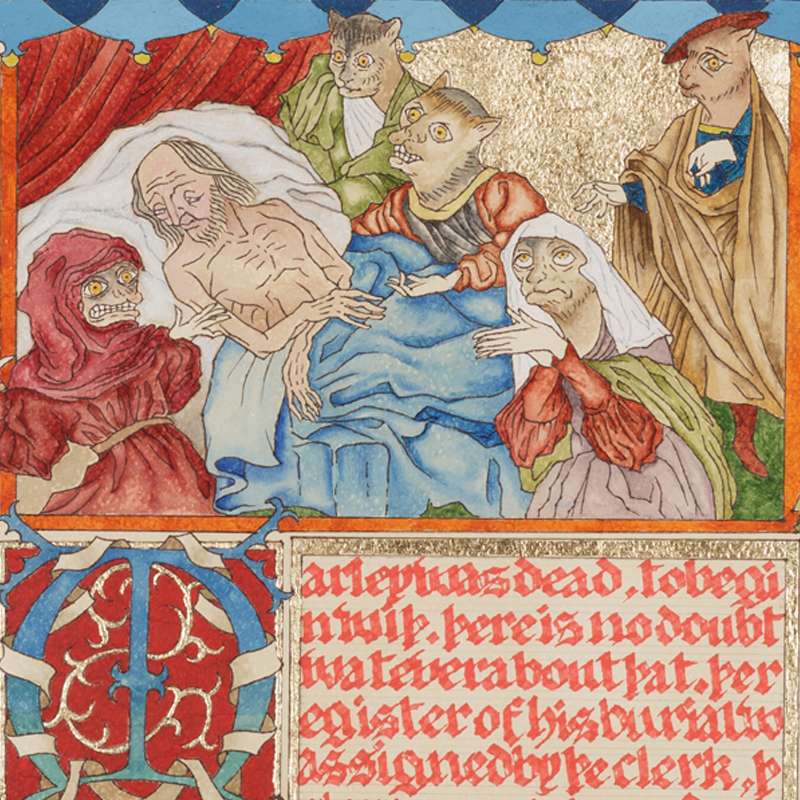 Marley was dead, to begi
n wiþ. þere is no doubt
watever about þat. þe r
egister of his burial w
as signed by þe clerk, þ